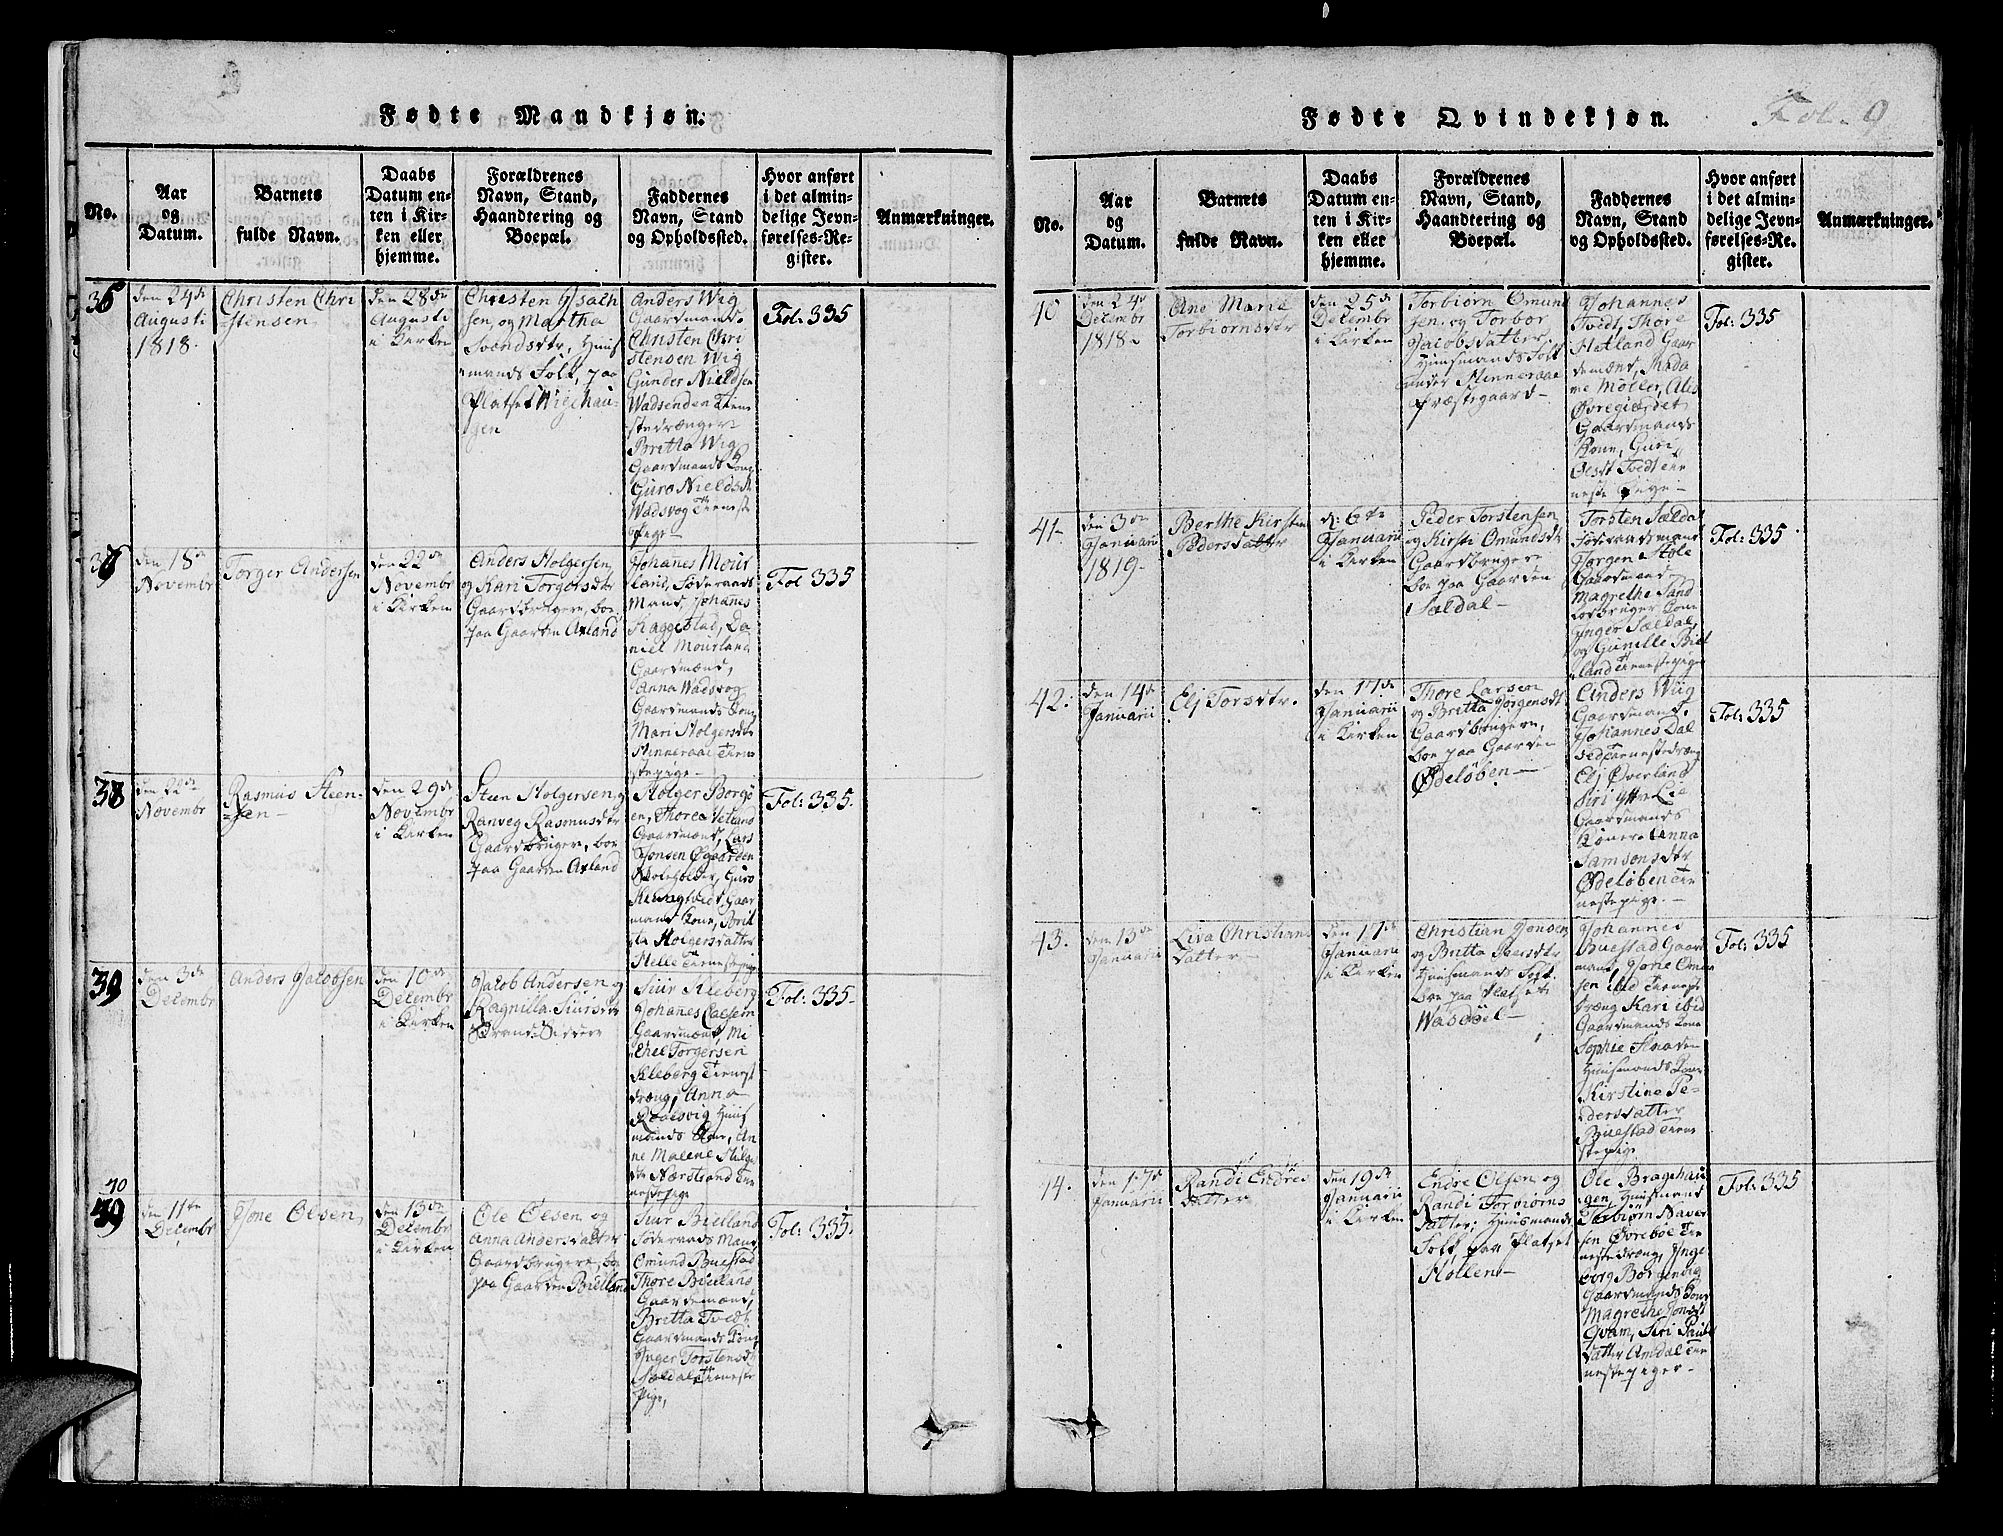 Fødte Mandkjøn.
No.
Aar
og
Datum.
Barnets
fulde Navn.
Daabs
Datum en-
ten i Kir-
ken eller
hjemme.
Forældrenes
Navn, Stand,
Haandtering og
Boepæl.
Faddernes
Navn, Stand
og Opholdssted.
Hvor anført
i det almin-
delige Jevn-
førelses-Re-
gister.
Anmærkninger.
36
den 24de
Augusti
1818.
Christen Chri
stensen
den 28de
Augusti
i Kirken
Christen Isach
sen, og Martha
Svendsdtr, Huus
mands Folk, paa
Platset
Anders Wiig
Gaardmand.
Christen Chri
stensen Wiig
Gunder Nieldsen
Wadsenden Tiene
stedrænger
Britta Wiig
Gaardmands Kone
Guro Nieldsdtr
Wadsvog Tieneste
Pige
Fol: 335
37
den 18de
Novembr
Torger Andersen
den 22de
Novembr
i Kirken
Anders Holgersen,
og Kari Torgersdtr
Gaardbrugere, boe
paa Gaarden Axland
Johanes Mour
land, Føderaads
Mand, Johanes
Raggestad, Da
niel Mourland
Gaardmænd,
Anna Wadsvog
Gaardmands Kone
Mari Holgersdtr
Hinneraae Tiene
stepige
Fol 335
38
den 22de
Novembr
Rasmus Steen-
sen
den 29de
Novembr
i Kirken
Steen Holgersen og
Ranveg Rasmusdtr
Gaardbrugere, boe
paa Gaarden Axland
Holger Borgø
en, Thore Vetland
Gaardmænd, Lars
Jonsen Øgaarden
Skoleholder, Guro
Gaar
mand Kone, Brit
ta Holgersdatter
Helle Tienestepige
Fol: 335.
39
den 3de
Decembr
Anders Jacobsen
den 10de
Decembr
i Kirken
Jacob Andersen og
Ragnilla Siursdtr
Strand-Siddere
Siur Kleberg
Johanes
Gaardmænd, Mi
chel Torgersen
Kleberg Tieneste
dræng, Anna
Huus
mands Kone, An
ne Malene
Nærstrand Tie
nestepige
Fol: 335
40
39
den 11te
Decembr
Jone Olsen
den 13de
Decembr
i Kirken
Ole Olsen og
Anna Andersdatter
Gaardbrugere, boe
paa Gaarden Bielland
Siur Bielland
Føderaads Mand
Omund Buestad
Thore Bielland
Gaardmænd,
Britta Tvedt
Gaardmands Kone
Inger Torstensdtr
Sældal Tieneste
Pige,
Fol: 335.
Fødte Qvindekjøn.
Fol. 9
No.
Aar
og
Datum.
Barnets
fulde Navn.
Daabs
Datum en-
ten i Kir-
ken eller
hjemme.
Forældrenes
Navn, Stand,
Haandtering og
Boepæl.
Faddernes
Navn, Stand
og Opholdssted.
Hvor anført
i det almin-
delige Jevn-
førelses-Re-
gister.
Anmærkninger.
40
den 2de
Decembr
1818.
Ane Marie
Torbiørnsdtr
den 25de
Decembr
i Kirken
Torbiørn Omund
sen, og Torbor
Jacobsdatter
Huusmands Folk
under Hinneraae
Præstegaard
Johannes
Tvedt, Thore
Hetland Gaar
demænd, Mada
me Møller,
Øvregierdet
Gaardmands
Kone, Guri
Olsdt Tvedt Tie
neste Pige
Fol: 335
41
den 3de
Januarii
1819.
Berthe Kirstine
Pedersdatter
d: 6te
Januarii
i Kirken
Peder Torstensen
og Kirsti Omundsdtr
Gaardbrugere
boe paa Gaarden
Sældal
Torsten Sældal
Føderaadsmand
Jørgen Støle
Gaardmand
Magrethe Sand
Kone
Inger Sældal,
og Gunille Biel
land Tienestepiger
Fol: 335
42.
den 14de
Januarii
Eli Torsdtr.
den 17de
Januarii
i Kirken
Thore Larsen
og Britta Jørgensdtr
Gaardbrugere,
boe paa Gaarden
Ødeløben
Anders Wiig
Gaardmand,
Johannes Dal
Tienestedræng
Eli Øverland
Siri Ytre Lie
Gaardmands
Koner. Anna
Samsonsdtr
Ødeløben Tie
nestepige.
Fol: 335
43.
den 13de
Januarii
Liva Christians
datter
den 17de
Januarii
i Kirken
Christian Jonsen
og Britta Iversdtr
Huusmands Folk
boe paa Platset
Johannes
Buestad Gaard
mand, Jone Omun
sen ibid Tieneste
dræng Kari ibid
Gaardmands Kone
Sophie
Huusmands Kone
Kirstine Pe-
dersdatter
Buestad Tiene
stepige
Fol: 335
44.
den 17de
Januarii
Randi Endres
datter
den 19de
Januarii
i Kirken
Endre Olsen og
Randi Torbiørns
datter, Huusmands
Folk, paa Platset
Hollen
Ole Bragehau
gen, Huusmand
Torbiørn Naver
sen Øvreboe Tie
nestedræng, Inge
borg
Gaardmands Kone
Magrethe Jonsdt
Qvam, Siri Pauls
datter Amdal Tie
nestepiger
Fol: 335